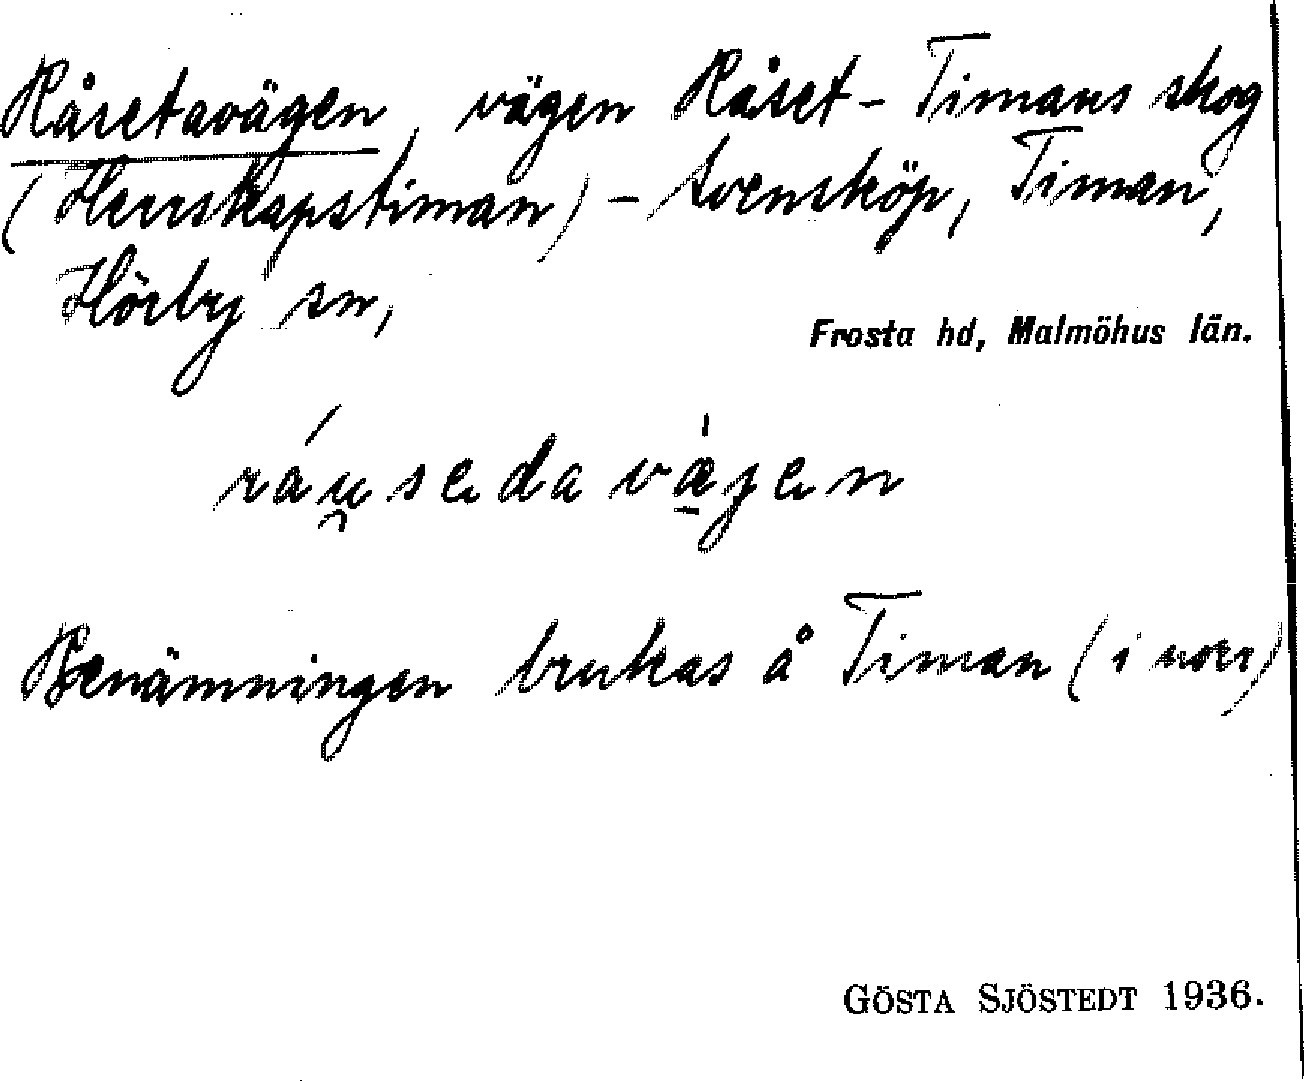 Råsetavägen, vägen Råset - Timans skog
(Herrskapstiman) - Svensköp, Timan,
Hörby sn,
Frosta hd, Malmöhus län.
ráu̯sedavǽgen
Benämningen brukas å Timan (i norr)
GÖSTA SJÖSTEDT 1936.